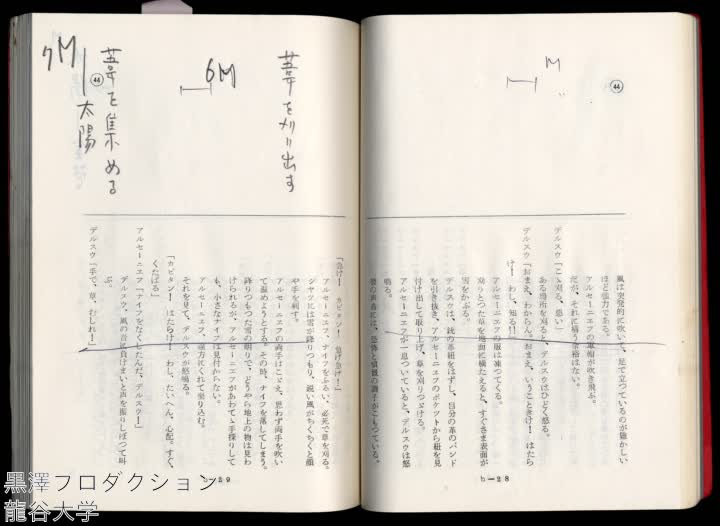 ㊹
M
風は突発的に吹いて、足で立つているのが難かしい
ほど強力である。
アルセーニエフの革帽が吹き飛ぶ。
だが、それに構う余裕はない。
デルスウ「こゝ刈る、悪い」
ある場所を刈ると、デルスウはひどく怒る。
デルスウ「おまえ、わからん。おまえ、いうこときけ！　はたら
け！　わし、知る!!」
アルセーニエフの服は凍つてくる。
刈りとつた草を地面に横たえると、すぐさま表面が
雪をかぶる。
デルスウは、銃の革紐をはずし、自分の革のバンド
を引き抜き、アルセーニエフのポケツトから紐を見
付け出して取り上げ、草を刈りつづける。
アルセーニエフが一息ついていると、デルスウは怒
鳴る。
彼の声音には、恐怖と憤激の調子がこもつている。
b－28
葦を刈り出す
6M
葦を集める
㊹
7M
太陽
「急げ！　カピタン！　急げ急げ！」
アルセーニエフ、ナイフをふるい、必死で草を刈る。
シヤツには雪が降りつもり、鋭い風がちくちくと顔
や手を刺す。
アルセーニエフの両手はこゞえ、思わず両手を吹い
て温めようとする。その時、ナイフを落してしまう。
降りつもつた雪の明りで、どうやら地上の物は見わ
けられるが、アルセーニエフがあわてゝ手探りして
も、小さなナイフは見付からない。
アルセーニエフ、途方にくれて坐り込む。
それを見て、デルスウが怒鳴る。
「カピタン！　はたらけ！　わし、たいへん、心配。すぐ、
くたばる」
アルセーニエフ「ナイフをなくしたんだ、デルスウ！」
デルスウ、風の音に負けまいと声を振りしぼつて叫
ぶ。
デルスウ「手で、草、むしれ！」
b－29
黒澤プロダクション
龍谷大学